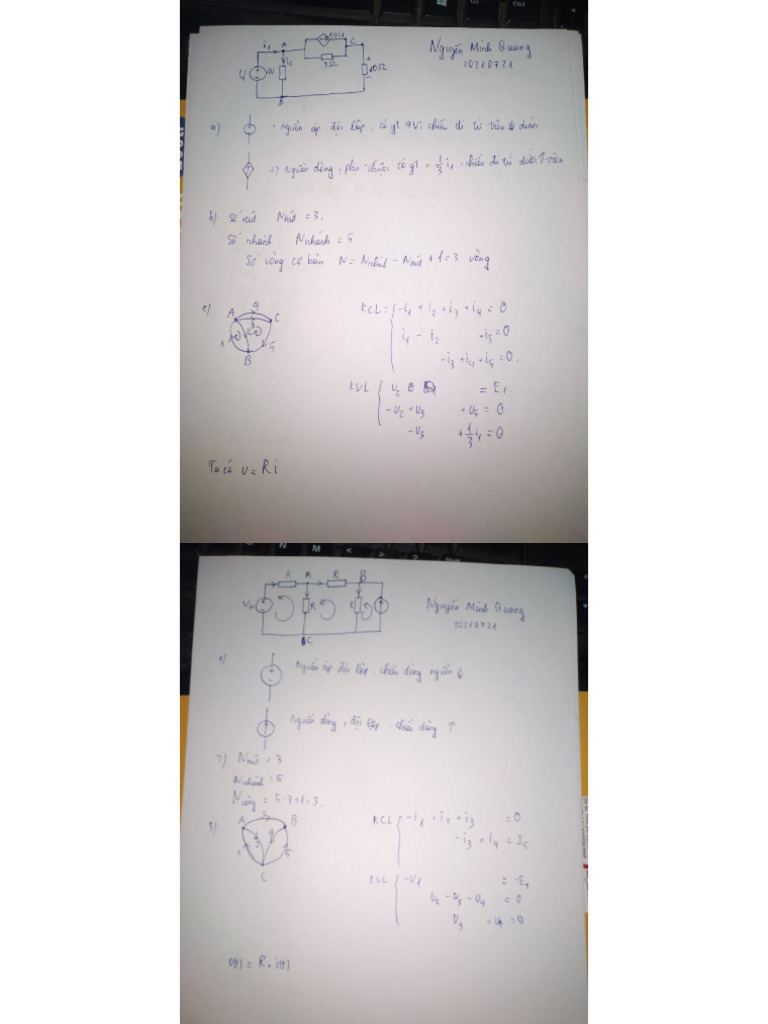 i₁ A C
i₂
3Ω
10Ω
B
Nguyễn Minh Quang
20210721
a) Nguồn áp, độc lập, có gt 9V, chiều đi từ trên ↓ dưới
+) Nguồn dòng, phụ thuộc có gt = 1/3 i₁, chiều đi từ dưới ↑ trên
b) Số nút Nnút = 3.
Số nhánh Nnhánh = 5
Số vòng cơ bản N = Nnhánh - Nnút + 1 = 3 vòng
c) A C B
KCL: -i₁ + i₂ + i₃ + i₄ = 0
i₁ - i₂ - i₅ = 0
-i₃ + i₄ + i₅ = 0.
KVL U₂ = E₁
-U₂ + U₃ + U₅ = 0
-U₃ + 1/3 i₁ = 0
Ta có U = Ri
N M < >
R A R B
R R
C
Nguyễn Minh Quang
20210721
Nguồn áp độc lập, chiều dòng nguồn ↓
Nguồn dòng, độc lập, chiều dòng ↑
2) Nnút = 3
Nnhánh = 5
Nvòng = 5-3+1 = 3.
3) A B C
KCL -i₁ + i₂ + i₃ = 0
-i₃ + i₄ = I₅
KVL -U₁ = -E₁
U₂ - U₃ - U₄ = 0
U₃ = 0
U(t) = R. i(t)